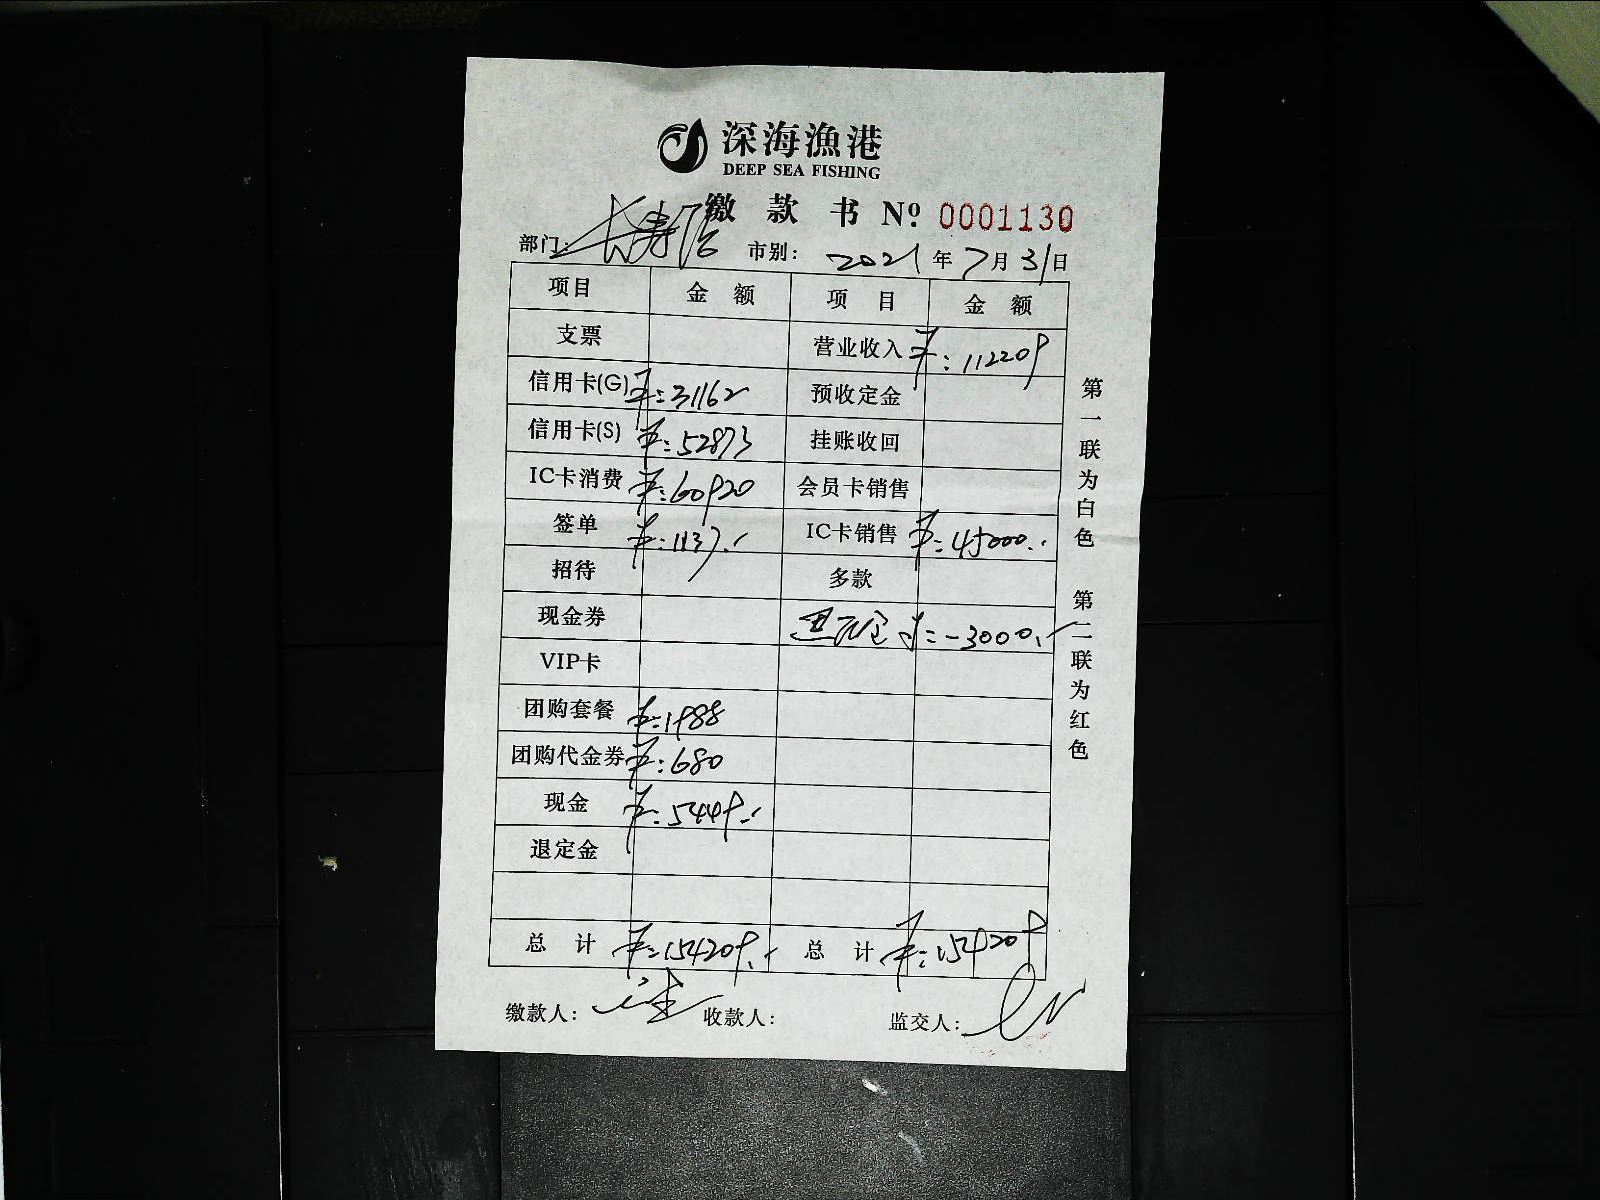 深海漁港
DEEP SEA FISHING
缴款书 Nº 0001130
部门: 长寿店 市别: 2021年7月31日
项目 金额 项目 金额
支票 营业收入 ¥:112209
信用卡(G) ¥:31162 预收定金
信用卡(S) ¥:52873 挂账收回
IC卡消费 ¥:60920 会员卡销售
签单 ¥:1137.- IC卡销售 ¥:45000.-
招待 多款
现金券 ¥:-3000.-
VIP卡
团购套餐 ¥:1988
团购代金券 ¥:680
现金 ¥:5449.-
退定金
总计 ¥:154209.- 总计 ¥:154209
缴款人: 收款人: 监交人:
第一联为白色 第二联为红色